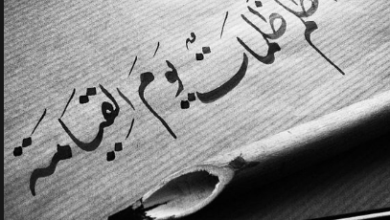 ظلماتٌ يَومَ القِيَامَة